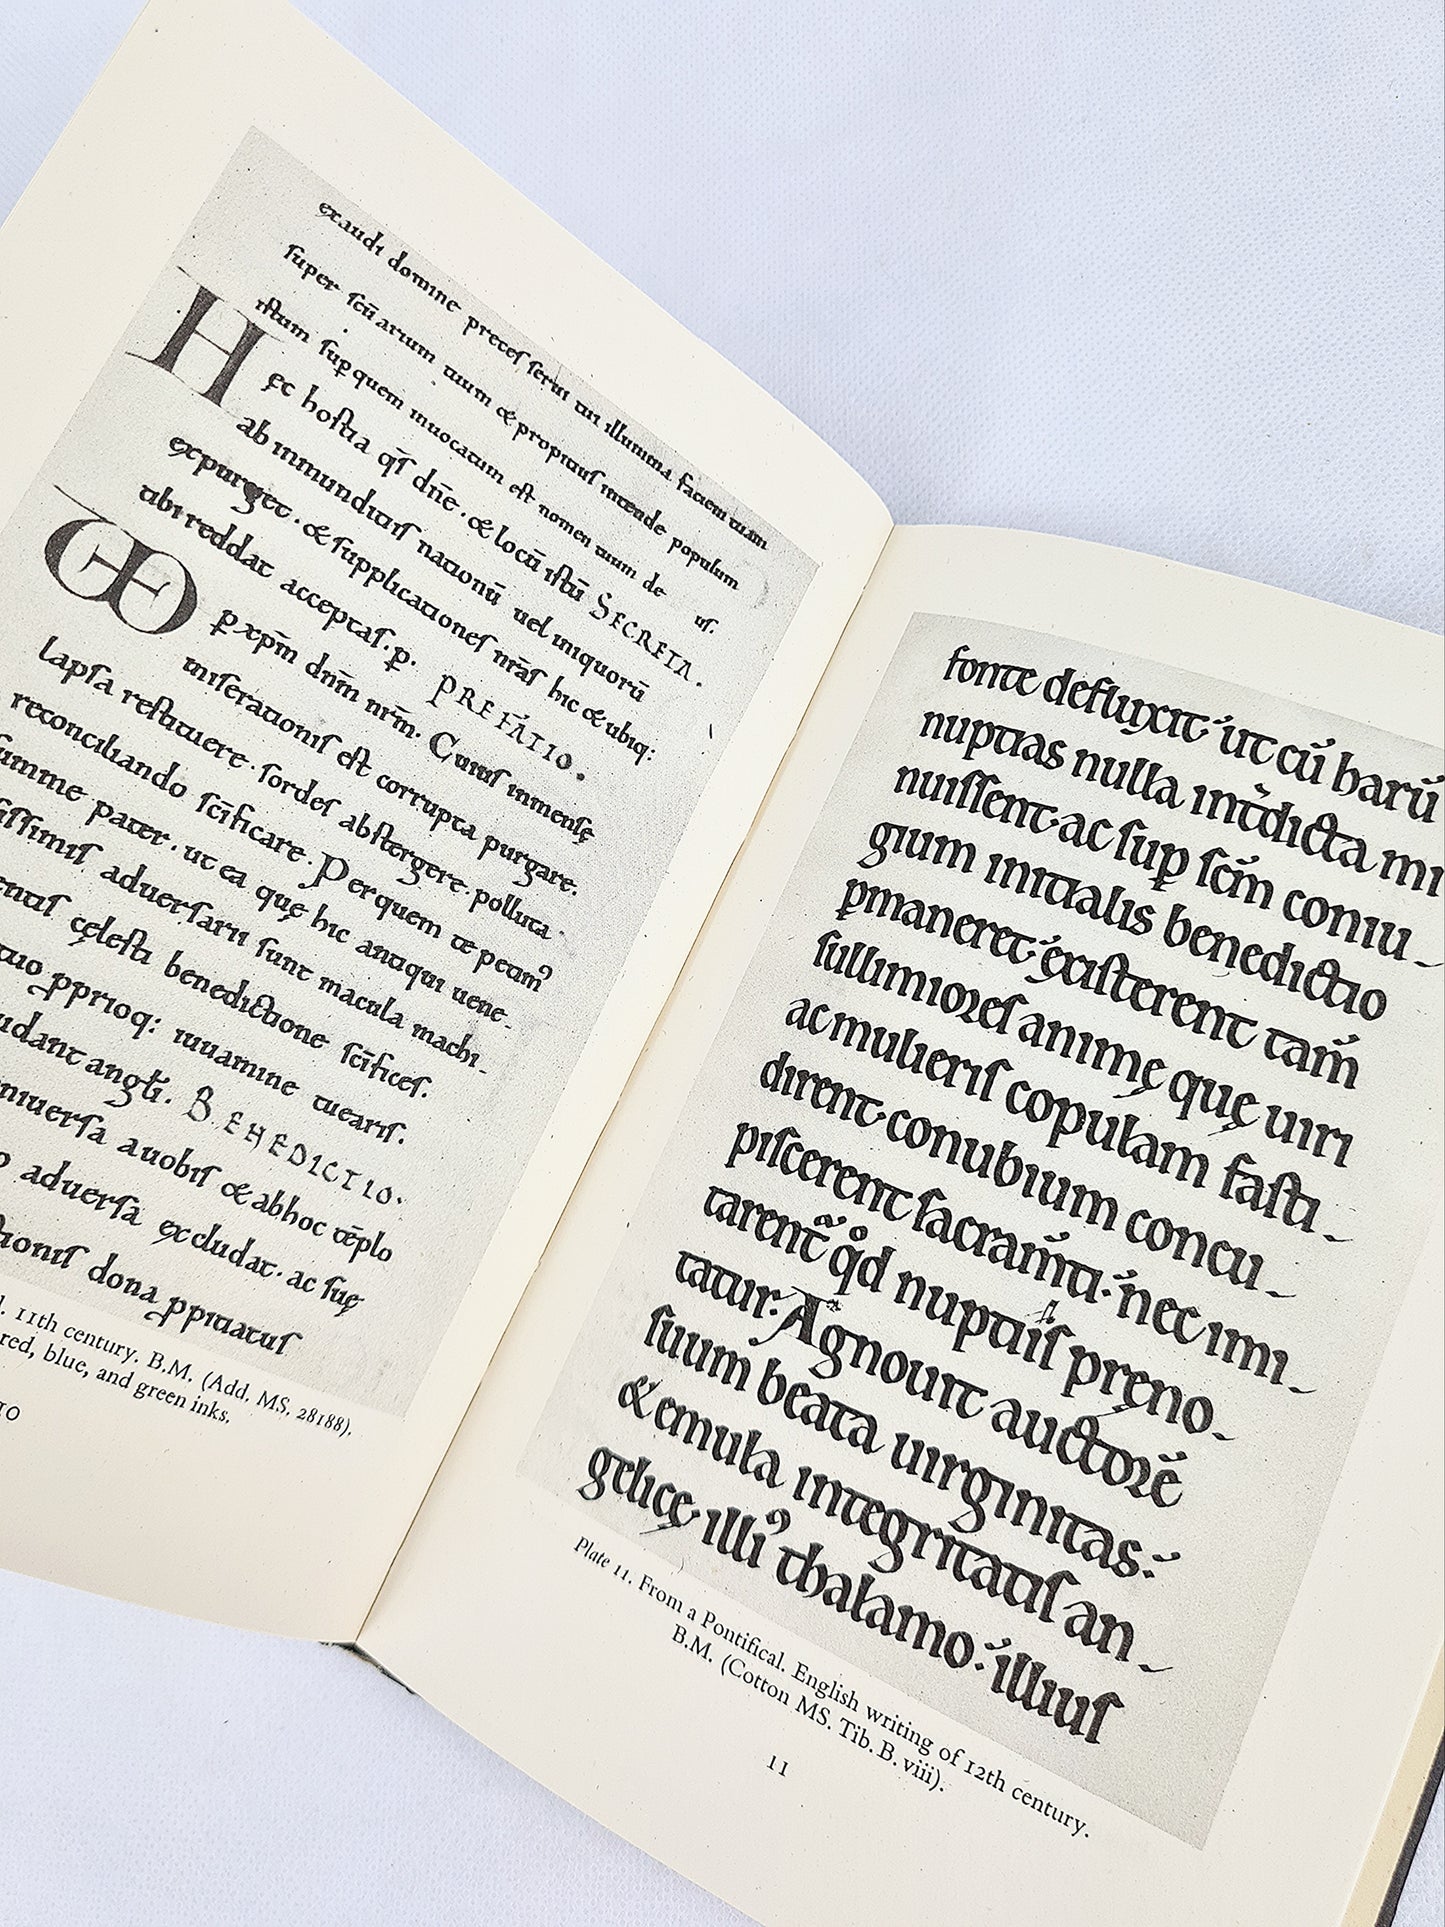 exaudi domine preces serui tui illumina faciem tuam
super scū̄arium tuum & propitius intende populum
istum sup quem inuocatum est nomen tuum de us.
Hęc hostia q̄s dn̄e. & locū istū SECRETA.
ab inmunditiis nationū uel iniquorū
expurget. & supplicationes nr̄as hic & ubiq:
tibi reddat acceptas. p. PREFATIO.
p xp̄m dn̄m nr̄m. Cuius inmensę
miserationis est corrupta purgare.
lapsa restituere. sordes abstergere. polluta
reconciliando sc̄ificare. Per quem te petim᾿
summe pater. ut ea quę hic antiqui uene-
issimis aduersarii sunt macula machi-
entis cęlesti benedictione sc̄ifices.
tuo pprioq: iuuamine tuearis.
udant angłi. BENEDICTIO.
niuersa auobis & abhoc tēplo
o aduersa excludat. ac suę
tionis dona ppitiatus
d. 11th century. B.M. (Add. MS. 28188).
red, blue, and green inks.
10
fonte defluxit ut cū barū
nuptias nulla int̄dicta mi
nuissent. ac sup sc̄m coniu-
gium initialis benedictio
pmaneret. existerent tam̄
sullimiores animę quę uiri
ac mulieris copulam fasti-
dirent. conubium concu-
piscerent sacram̄ti. nec imi-
tarent᷒ qd nuptiis pręno-
tatur. Agnouit auctorē
suum beata uirginitas.
& emula integritatis an-
gelicę. illi᾿ thalamo. illius
Plate 11. From a Pontifical. English writing of 12th century.
B.M. (Cotton MS. Tib. B. viii).
11